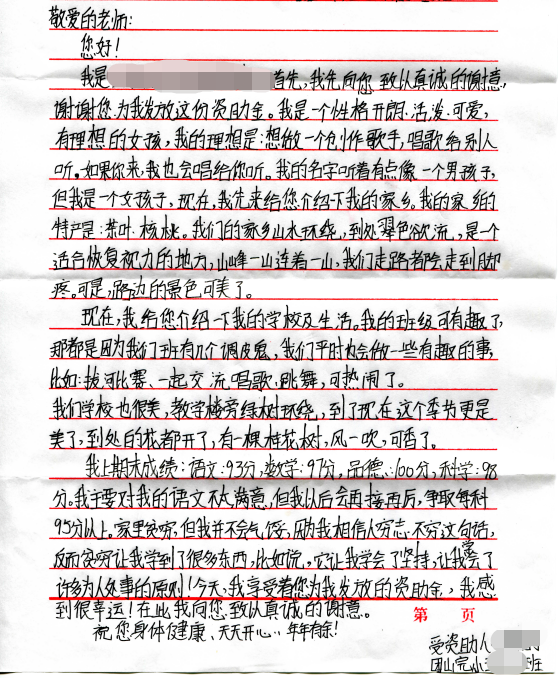 敬爱的老师:
您好!
我是 首先,我先向您致以真诚的谢意,
谢谢您为我发放这份资助金。我是一个性格开朗.活泼.可爱,
有理想的女孩,我的理想是:想做一个创作歌手,唱歌给别人
听。如果你来,我也会唱给你听。我的名字听着有点像一个男孩子,
但我是一个女孩子,现在,我先来给您介绍一下我的家乡。我的家乡的
特产是:茶叶.核桃。我们的家乡山水环绕,到处翠色欲流,是一个
适合恢复视力的地方,山峰一山连着一山,我们走路都会走到脚
疼。可是,路边的景色可美了。
现在,我给您介绍一下我的学校及生活。我的班级可有趣了,
那都是因为我们班有几个调皮鬼,我们平时也会做一些有趣的事,
比如:拔河比赛、一起交流.唱歌.跳舞,可热闹了。
我们学校也很美,教学楼旁绿树环绕,到了现在这个季节更是
美了,到处的花都开了,有一棵桂花树,风一吹,可香了。
我上期末成绩:语文:93分,数学:97分,品德:100分,科学:98
分。我主要对我的语文不太满意,但我以后会再接再后,争取每科
95分以上。家里贫穷,但我并不会气馁,因为我相信人穷志不穷这句话,
反而贫穷让我学到了很多东西,比如说,它让我学会了坚持,让我学会了
许多为人处事的原则!今天,我享受着您为我发放的资助金,我感
到很幸运!在此我向您致以真诚的谢意。
祝您身体健康、天天开心..年年有余!
第 页
受资助人
团山完小 班